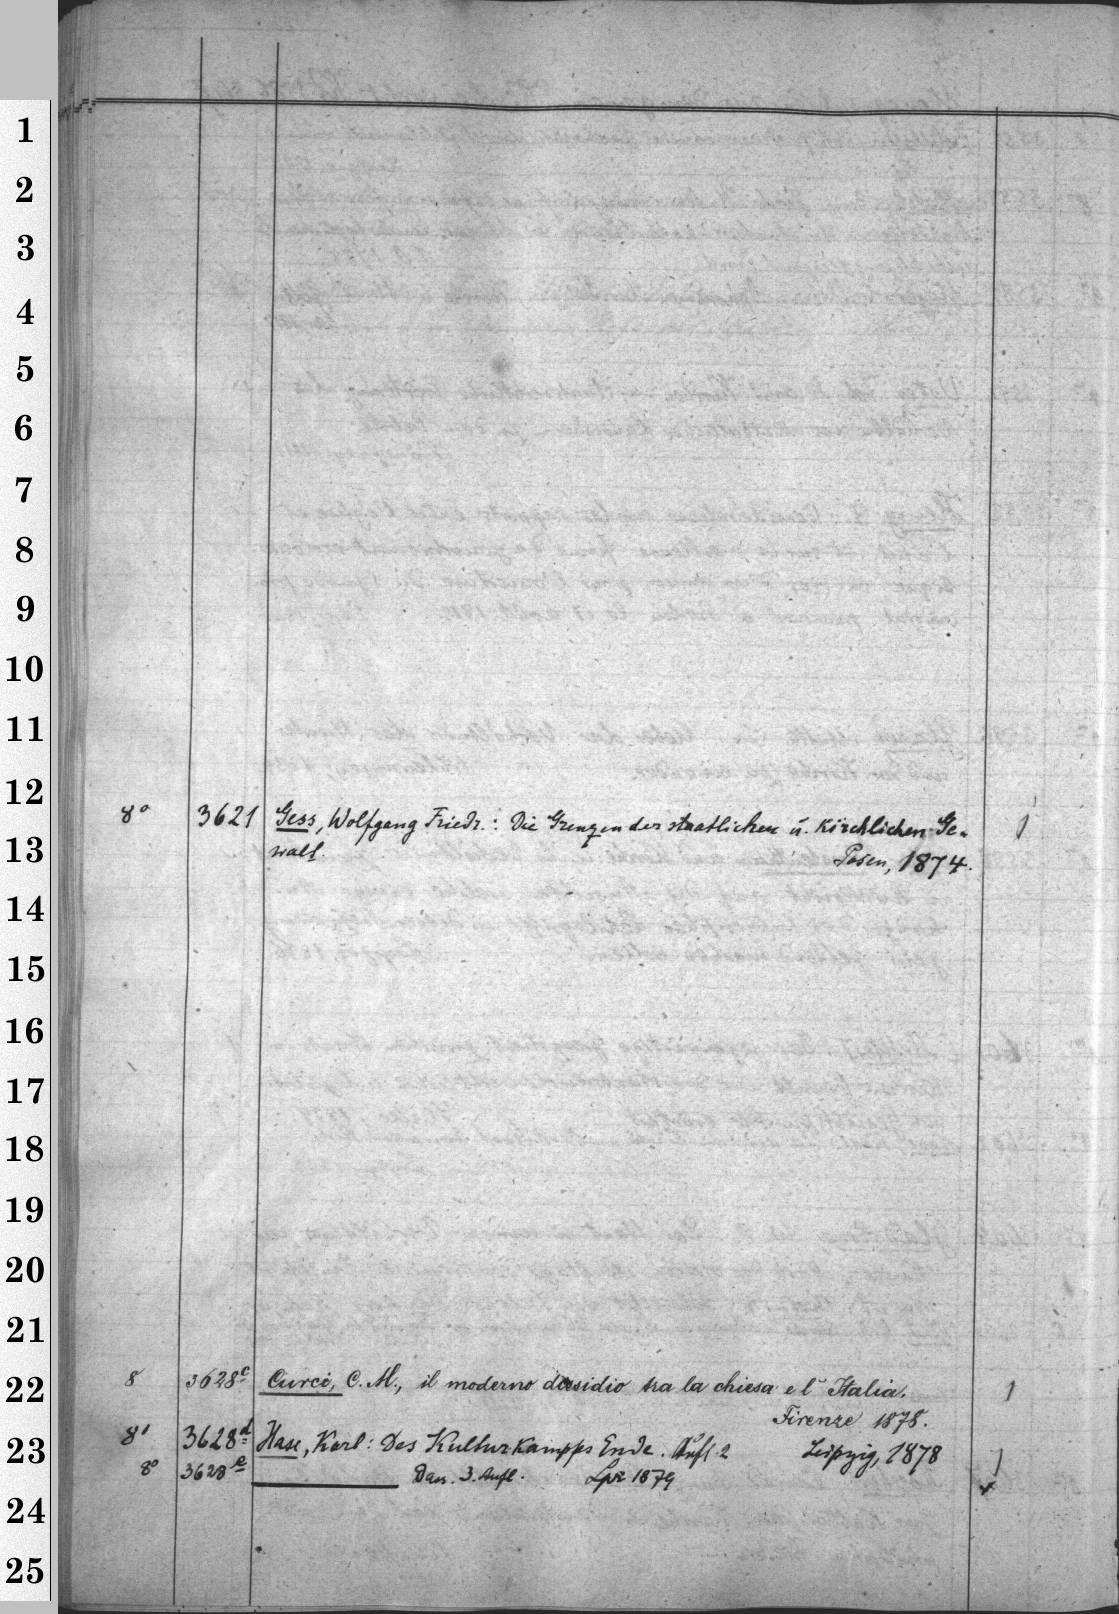 1
2
3
4
5
6
7
8
9
10
11
12
8° 3621 Gess, Wolfgang Friedr.: Die Grenzen der staatlichen u. kirchlichen Ge- 1
13
walt. Posen, 1874.
14
15
16
17
18
19
20
21
22
8 3628c Curci, C. M., il moderno dissidio tra la chiesa e l'Italia. 1
Firenze 1878.
23
8° 3628d Hase, Karl: Des Kulturkampfes Ende. Aufl. 2 Leipzig, 1878 1
8° 3628e Dass. 3. Aufl. Lpz 1879
24
25